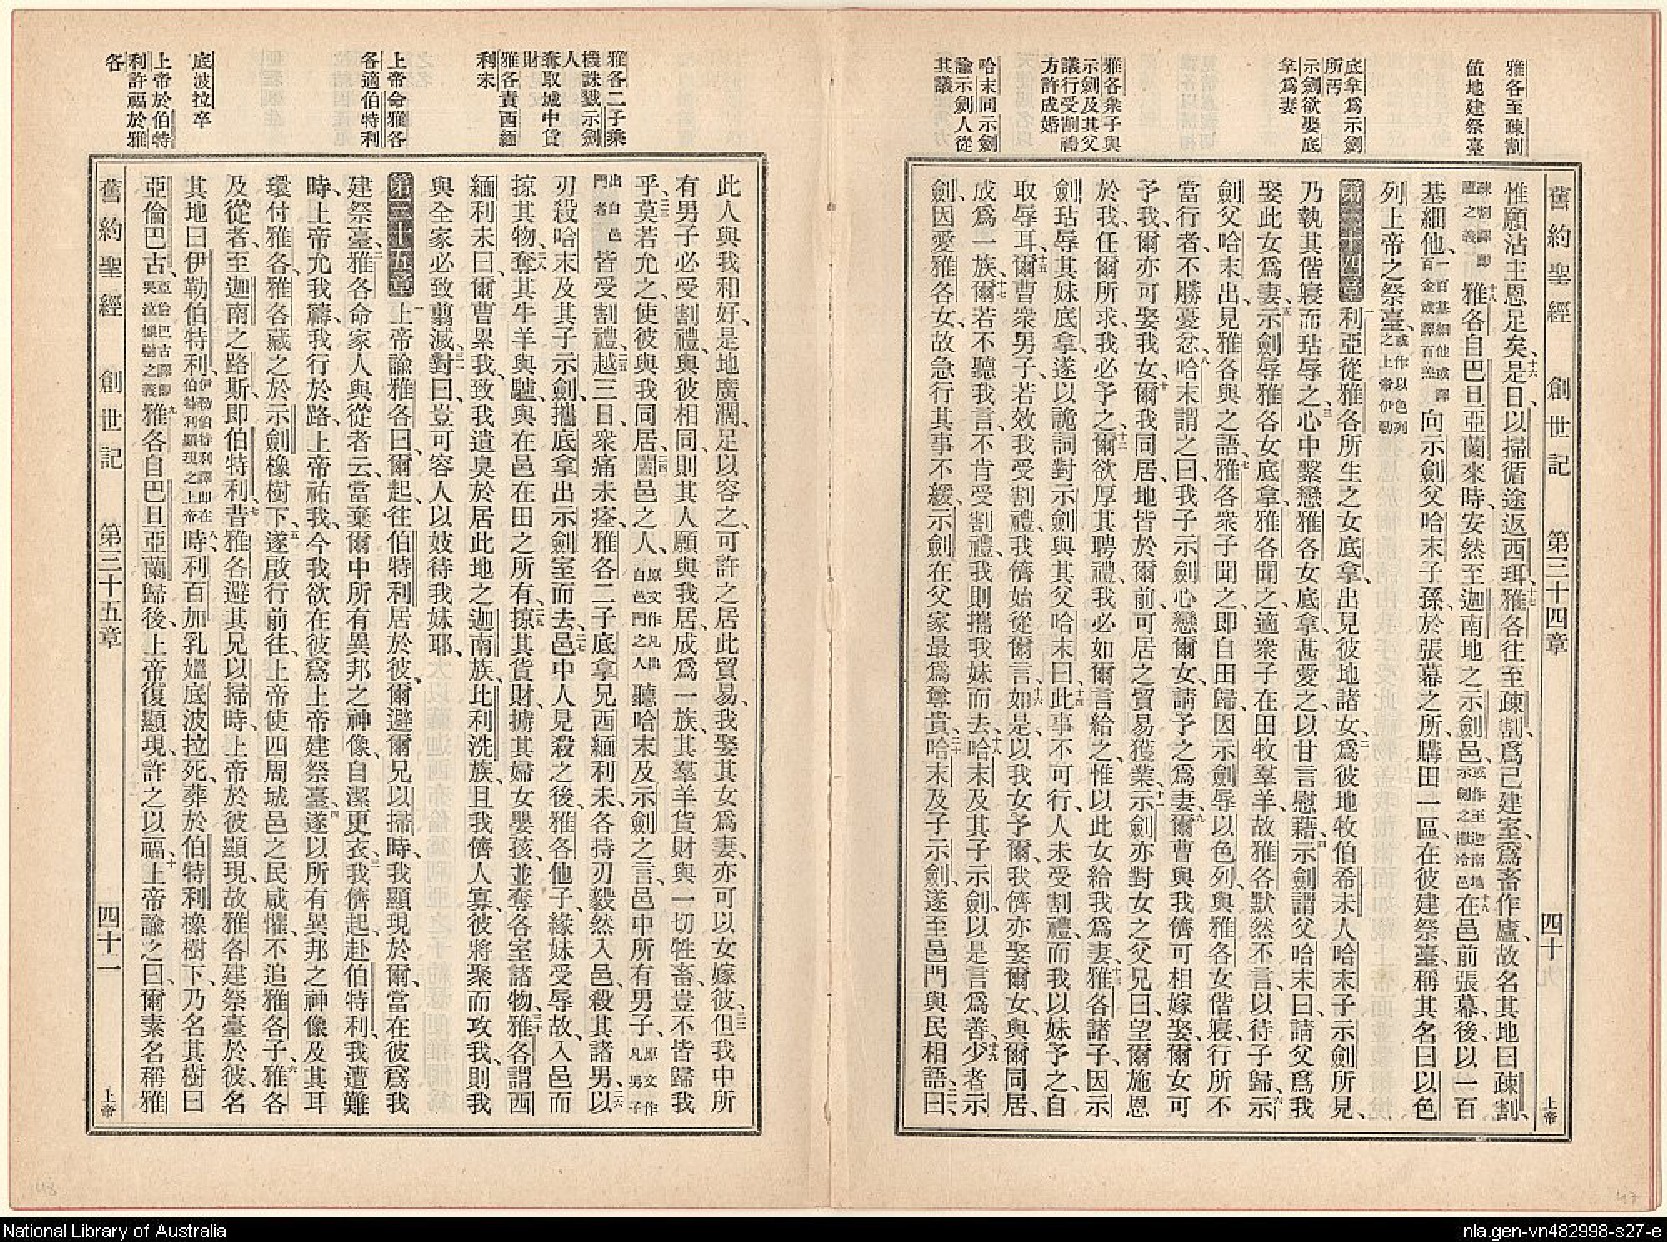 雅各至疎割
值地建祭臺
底拿爲示劍
所汚
示劍欲娶底
拿爲妻
雅各衆子與
示劍及其父
議行受割禮
方許成婚
哈末同示劍
諭示劍人從
其議
舊約聖經 創世記 第三十四章 四十 上帝
惟願沾主恩足矣、十六是日以掃循途返西珥、十七雅各往至疎割、爲己建室、爲畜作廬、故名其地曰疎割、
疎割譯卽廬之義 十八雅各自巴旦亞蘭來時、安然至迦南地之示劍邑、或作至迦南地示劍之撒冷邑 十九在邑前張幕、後以一百
基細他、一百基細他或譯百金或譯百羔 向示劍父哈末子孫、於張幕之所、購田一區、二十在彼建祭臺、稱其名曰以色
列上帝之祭臺、或作以色列之上帝伊勒
第三十四章 一利亞從雅各所生之女底拿、出見彼地諸女、二爲彼地牧伯希未人哈末子示劍所見、
乃執其偕寢而玷辱之、三心中繫戀雅各女底拿、甚愛之、以甘言慰藉、四示劍謂父哈末曰、請父爲我
娶此女爲妻、五示劍辱雅各女底拿、雅各聞之、適衆子在田牧羣羊、故雅各默然不言、以待子歸、六示
劍父哈末出見雅各與之語、七雅各衆子聞之、卽自田歸、因示劍辱以色列、與雅各女偕寢、行所不
當行者、不勝憂忿、八哈末謂之曰、我子示劍、心戀爾女、請予之爲妻、九爾曹與我儕可相嫁娶、爾女可
予我、爾亦可娶我女、十爾我同居、地皆於爾前、可居之貿易獲業、十一示劍亦對女之父兄曰、望爾施恩
於我、任爾所求、我必予之、十二爾欲厚其聘禮、我必如爾言給之、惟以此女給我爲妻、十三雅各諸子、因示
劍玷辱其妹底拿、遂以詭詞對示劍與其父哈末曰、十四此事不可行、人未受割禮、而我以妹予之、自
取辱耳、十五爾曹衆男子、若效我受割禮、我儕始從爾言、十六如是、以我女予爾、我儕亦娶爾女、與爾同居、
成爲一族、十七爾若不聽我言、不肯受割禮、我則攜我妹而去、十八哈末及其子示劍、以是言爲善、十九少者示
劍、因愛雅各女、故急行其事不緩、示劍在父家最爲尊貴、二十哈末及子示劍、遂至邑門、與民相語、二一曰、
雅各二子乘
機誅戮示劍
人
奪取城中貨
財
雅各責西緬
利未
上帝命雅各
各適伯特利
底波拉卒
上帝於伯特
利許福於雅
各
此人與我和好、是地廣濶、足以容之、可許之居此貿易、我娶其女爲妻、亦可以女嫁彼、二二但我中所
有男子、必受割禮、與彼相同、則其人願與我居、成爲一族、二三其羣羊貨財、與一切牲畜、豈不皆歸我
乎、莫若允之、使彼與我同居、二四闔邑之人、原文作凡出自邑門之人 聽哈末及示劍之言、邑中所有男子、原文作凡男子
出自邑門者 皆受割禮、二五越三日、衆痛未痊、雅各二子、底拿兄西緬利未、各持刃毅然入邑、殺其諸男、二六以
刃殺哈末及其子示劍、攜底拿出示劍室而去、二七邑中人見殺之後、雅各他子、緣妹受辱故、入邑而
掠其物、二八奪其牛羊與驢、與在邑在田之所有、二九掠其貨財、擄其婦女嬰孩、並奪各室諸物、三十雅各謂西
緬利未曰、爾曹累我、致我遺臭於居此地之迦南族、比利洗族、且我儕人寡、彼將聚而攻我、則我
與全家必致翦滅、三一對曰、豈可容人以妓待我妹耶、
第三十五章 一上帝諭雅各曰、爾起、往伯特利、居於彼、爾避爾兄以掃時、我顯現於爾、當在彼爲我
建祭臺、二雅各命家人與從者云、當棄爾中所有異邦之神像、自潔更衣、三我儕起、赴伯特利、我遭難
時、上帝允我籲、我行於路、上帝祐我、今我欲在彼爲上帝建祭臺、四遂以所有異邦之神像、及其耳
環付雅各、雅各藏之於示劍橡樹下、五遂啟行前往、上帝使四周城邑之民咸懼、不追雅各子、六雅各
及從者至迦南之路斯、卽伯特利、七昔雅各避其兄以掃時、上帝於彼顯現、故雅各建祭臺於彼、名
其地曰伊勒伯特利、伊勒伯特利譯卽在伯特利顯現之上帝 八時利百加乳媼底波拉死、葬於伯特利橡樹下、乃名其樹曰
亞倫巴古、亞倫巴古譯卽哭泣橡樹之義 九雅各自巴旦亞蘭歸後、上帝復顯現、許之以福、十上帝諭之曰、爾素名稱雅
舊約聖經 創世記 第三十五章 四十一 上帝
National Library of Australia
nla.gen-vn482998-s27-e